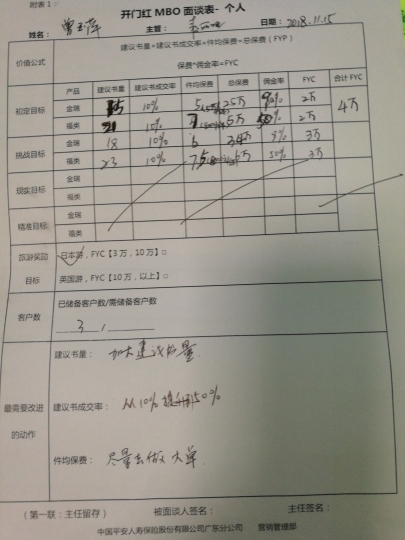 附表1：
开门红 MBO 面谈表- 个人
姓名： 主管： 日期：2018.11.15
价值公式
建议书量*建议书成交率=件均保费=总保费（FYP）
保费*佣金率=FYC
产品 建议书量 建议书成交率 件均保费 总保费 佣金率 FYC 合计 FYC
初定目标 金瑞 10% 2万 4万
福类 10% 5万 2万
挑战目标 金瑞 18 10% 3万
福类 23 10% 50% 3万
现实目标 金瑞
福类
精准目标 金瑞
福类
旅游奖励 日本游，FYC【3 万，10 万】□
目标 英国游，FYC【10 万，以上】□
客户数 已储备客户数/需储备客户数
3 /
建议书量： 加大建议书量
最需要改进 建议书成交率： 从10%提升到50%
的动作
件均保费： 尽量去做大单
（第一联：主任留存） 被面谈人签名： 主任签名：
中国平安人寿保险股份有限公司广东分公司 营销管理部